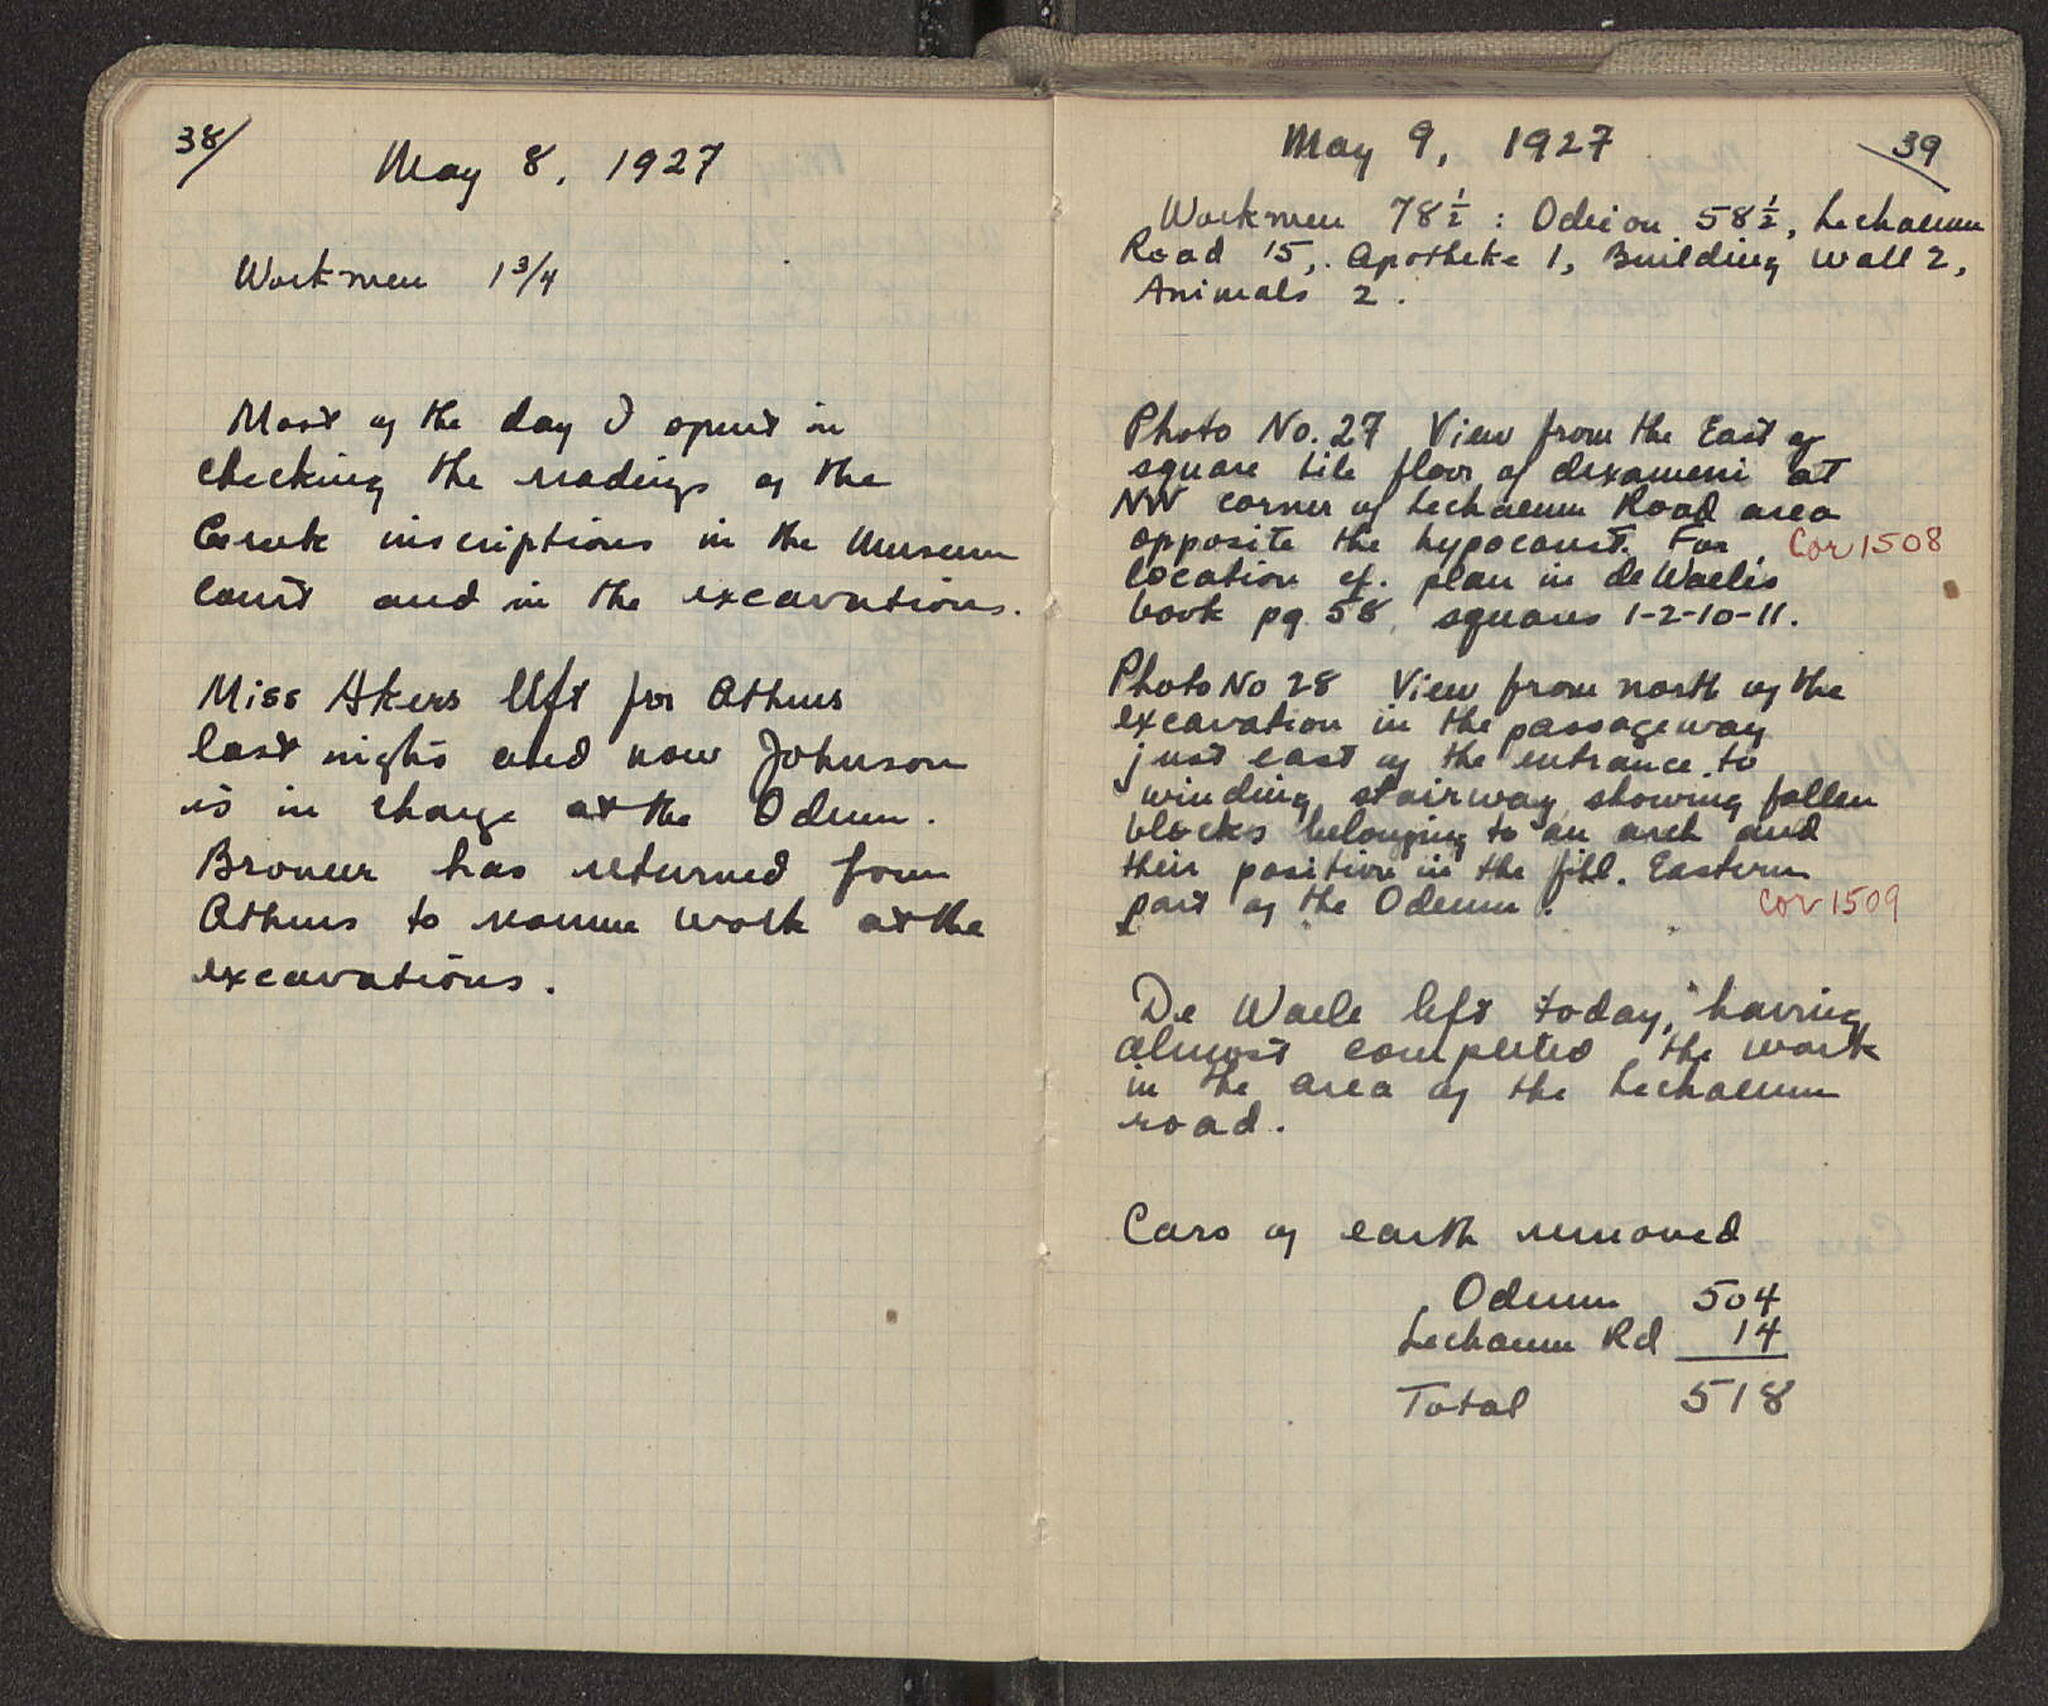 38/
May 8, 1927
Workmen 1 3/4
Most of the day I spent in
checking the readings of the
Greek inscriptions in the Museum
court and in the excavations.
Miss Akers left for Athens
last night and now Johnson
is in charge at the Odeum.
Broneer has returned from
Athens to resume work at the
excavations.
39
May 9, 1927
Workmen 78 1/2 : Odeion 58 1/2, Lechaeum
Road 15, Apotheke 1, Building wall 2,
Animals 2.
Photo No. 27 View from the East of
square tile floor of dexameni at
NW corner of Lechaeum Road area
opposite the hypocaust. For Cor 1508
location cf. plan in de Waele's
book pg 58, squares 1-2-10-11.
Photo No 28 View from north of the
excavation in the passageway
just east of the entrance to
winding stairway showing fallen
blocks belonging to an arch and
their position in the fill. Eastern
part of the Odeum. Cor 1509
De Waele left today, having
almost completed the work
in the area of the Lechaeum
road.
Cars of earth removed
Odeum 504
Lechaeum Rd 14
Total 518